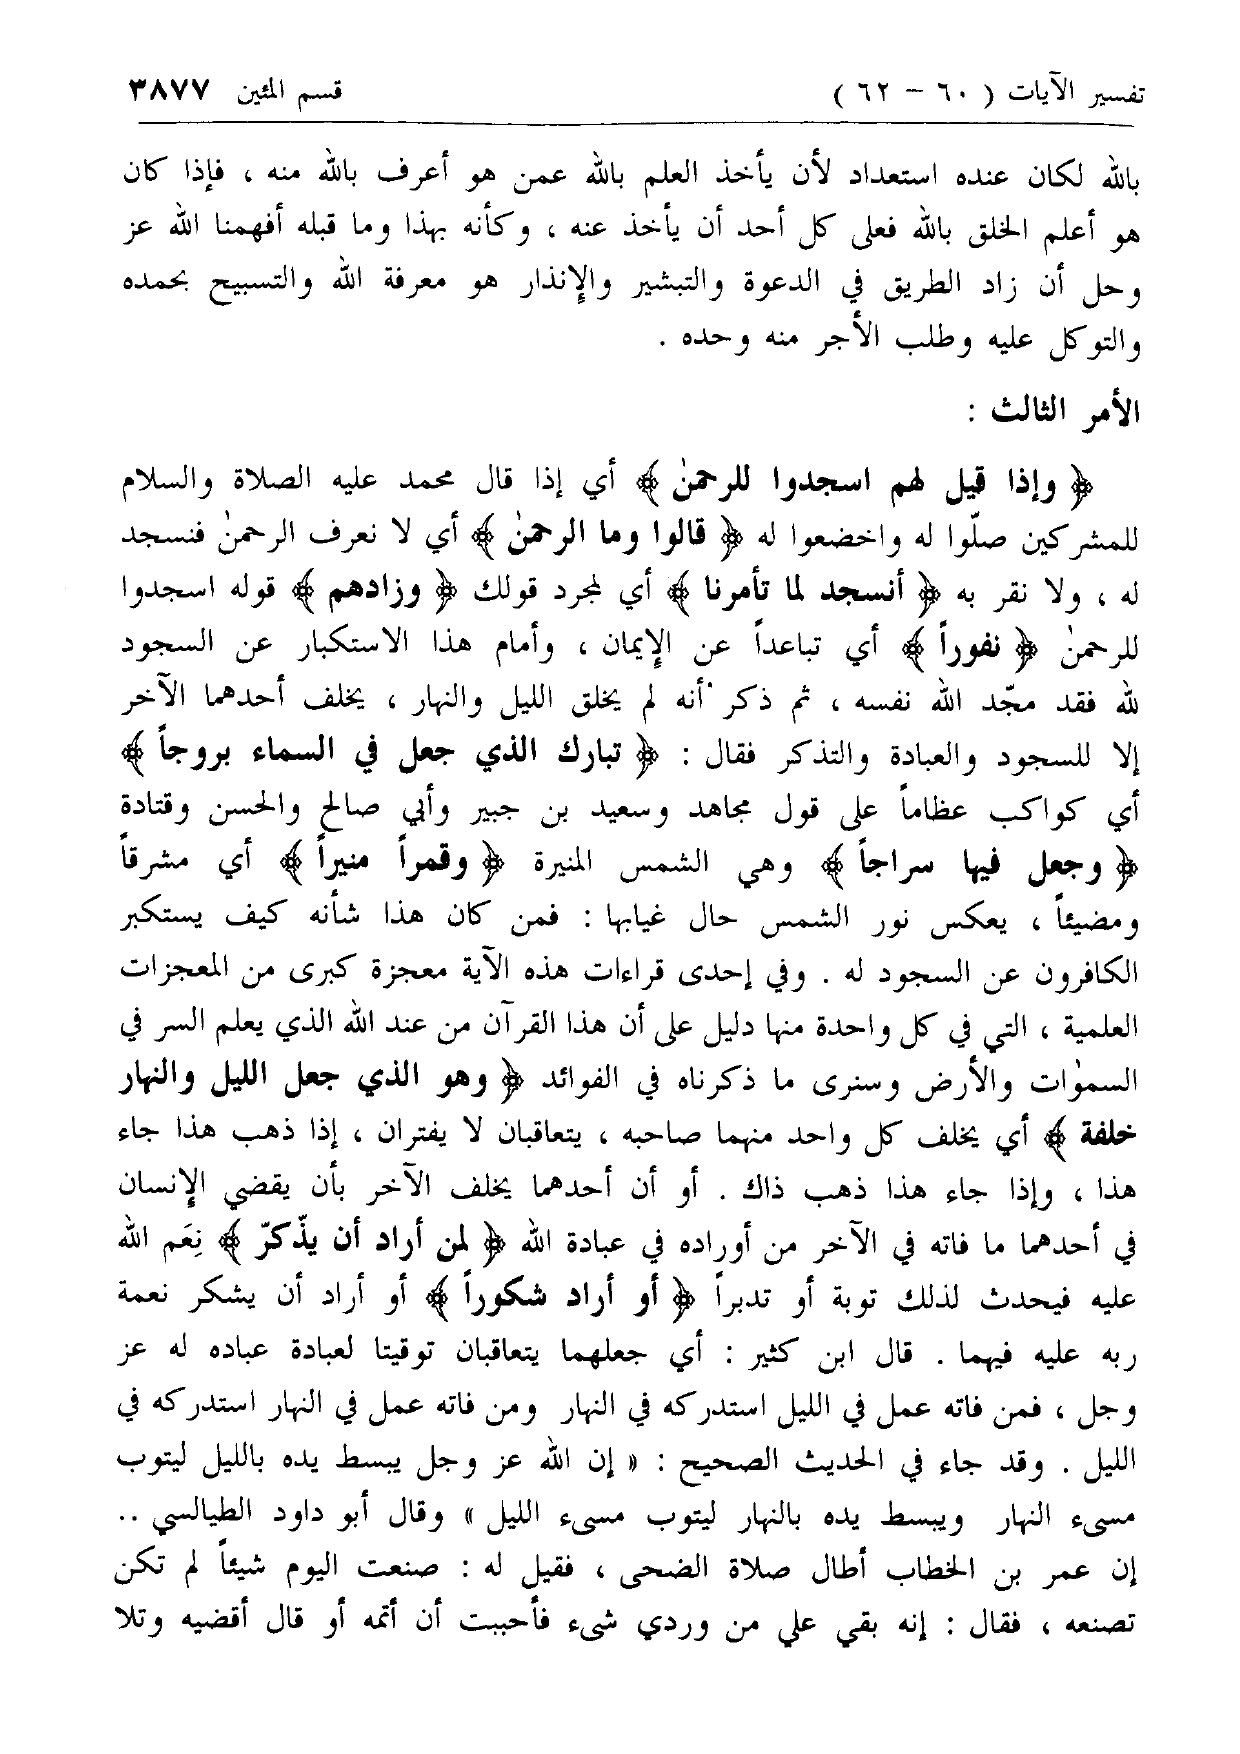 تفسير الآيات ( ٦٠ - ٦٢ ) قسم المئين ٣٨٧٧
بالله لكان عنده استعداد لأن يأخذ العلم بالله عمن هو أعرف بالله منه ، فإذا كان
هو أعلم الخلق بالله فعلى كل أحد أن يأخذ عنه ، وكأنه بهذا وما قبله أفهمنا الله عز
وحل أن زاد الطريق في الدعوة والتبشير والإنذار هو معرفة الله والتسبيح بحمده
والتوكل عليه وطلب الأجر منه وحده .
الأمر الثالث :
﴿ وإذا قيل لهم اسجدوا للرحمٰن ﴾ أي إذا قال محمد عليه الصلاة والسلام
للمشركين صلّوا له واخضعوا له ﴿ قالوا وما الرحمٰن ﴾ أي لا نعرف الرحمٰن فنسجد
له ، ولا نقر به ﴿ أنسجد لما تأمرنا ﴾ أي لمجرد قولك ﴿ وزادهم ﴾ قوله اسجدوا
للرحمٰن ﴿ نفوراً ﴾ أي تباعداً عن الإيمان ، وأمام هذا الاستكبار عن السجود
لله فقد مجّد الله نفسه ، ثم ذكر أنه لم يخلق الليل والنهار ، يخلف أحدهما الآخر
إلا للسجود والعبادة والتذكر فقال : ﴿ تبارك الذي جعل في السماء بروجاً ﴾
أي كواكب عظاماً على قول مجاهد وسعيد بن جبير وأبي صالح والحسن وقتادة
﴿ وجعل فيها سراجاً ﴾ وهي الشمس المنيرة ﴿ وقمراً منيراً ﴾ أي مشرقاً
ومضيئاً ، يعكس نور الشمس حال غيابها : فمن كان هذا شأنه كيف يستكبر
الكافرون عن السجود له . وفي إحدى قراءات هذه الآية معجزة كبرى من المعجزات
العلمية ، التي في كل واحدة منها دليل على أن هذا القرآن من عند الله الذي يعلم السر في
السمٰوات والأرض وسنرى ما ذكرناه في الفوائد ﴿ وهو الذي جعل الليل والنهار
خلفة ﴾ أي يخلف كل واحد منهما صاحبه ، يتعاقبان لا يفتران ، إذا ذهب هذا جاء
هذا ، وإذا جاء هذا ذهب ذاك . أو أن أحدهما يخلف الآخر بأن يقضي الإنسان
في أحدهما ما فاته في الآخر من أوراده في عبادة الله ﴿ لمن أراد أن يذّكرّ ﴾ نِعَم الله
عليه فيحدث لذلك توبة أو تدبراً ﴿ أو أراد شكوراً ﴾ أو أراد أن يشكر نعمة
ربه عليه فيهما . قال ابن كثير : أي جعلهما يتعاقبان توقيتا لعبادة عباده له عز
وجل ، فمن فاته عمل في الليل استدركه في النهار ومن فاته عمل في النهار استدركه في
الليل . وقد جاء في الحديث الصحيح : « إن الله عز وجل يبسط يده بالليل ليتوب
مسىء النهار ويبسط يده بالنهار ليتوب مسىء الليل » وقال أبو داود الطيالسي ..
إن عمر بن الخطاب أطال صلاة الضحى ، فقيل له : صنعت اليوم شيئاً لم تكن
تصنعه ، فقال : إنه بقي علي من وردي شىء فأحببت أن أتمه أو قال أقضيه وتلا